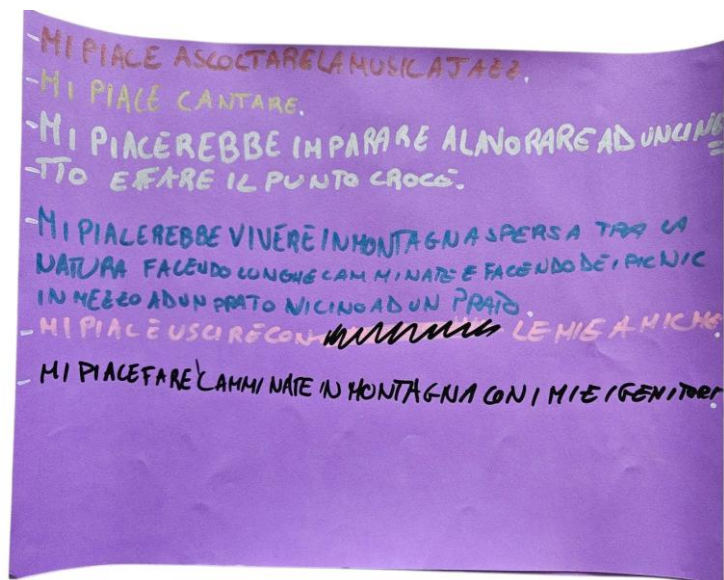 -MI PIACE ASCOLTARE LA MUSICA JAZZ.
-MI PIACE CANTARE.
-MI PIACEREBBE IMPARARE A LAVORARE AD UNCINE
-TTO E FARE IL PUNTO CROCE.
-MI PIACEREBBE VIVERE IN MONTAGNA SPERSA TRA LA
NATURA FACENDO LUNGHE CAMMINATE E FACENDO DEI PICNIC
IN MEZZO AD UN PRATO VICINO AD UN PRATO.
-MI PIACE USCIRE CON LE MIE AMICHE.
- MI PIACE FARE CAMMINATE IN MONTAGNA CON I MIEI GENITORI.